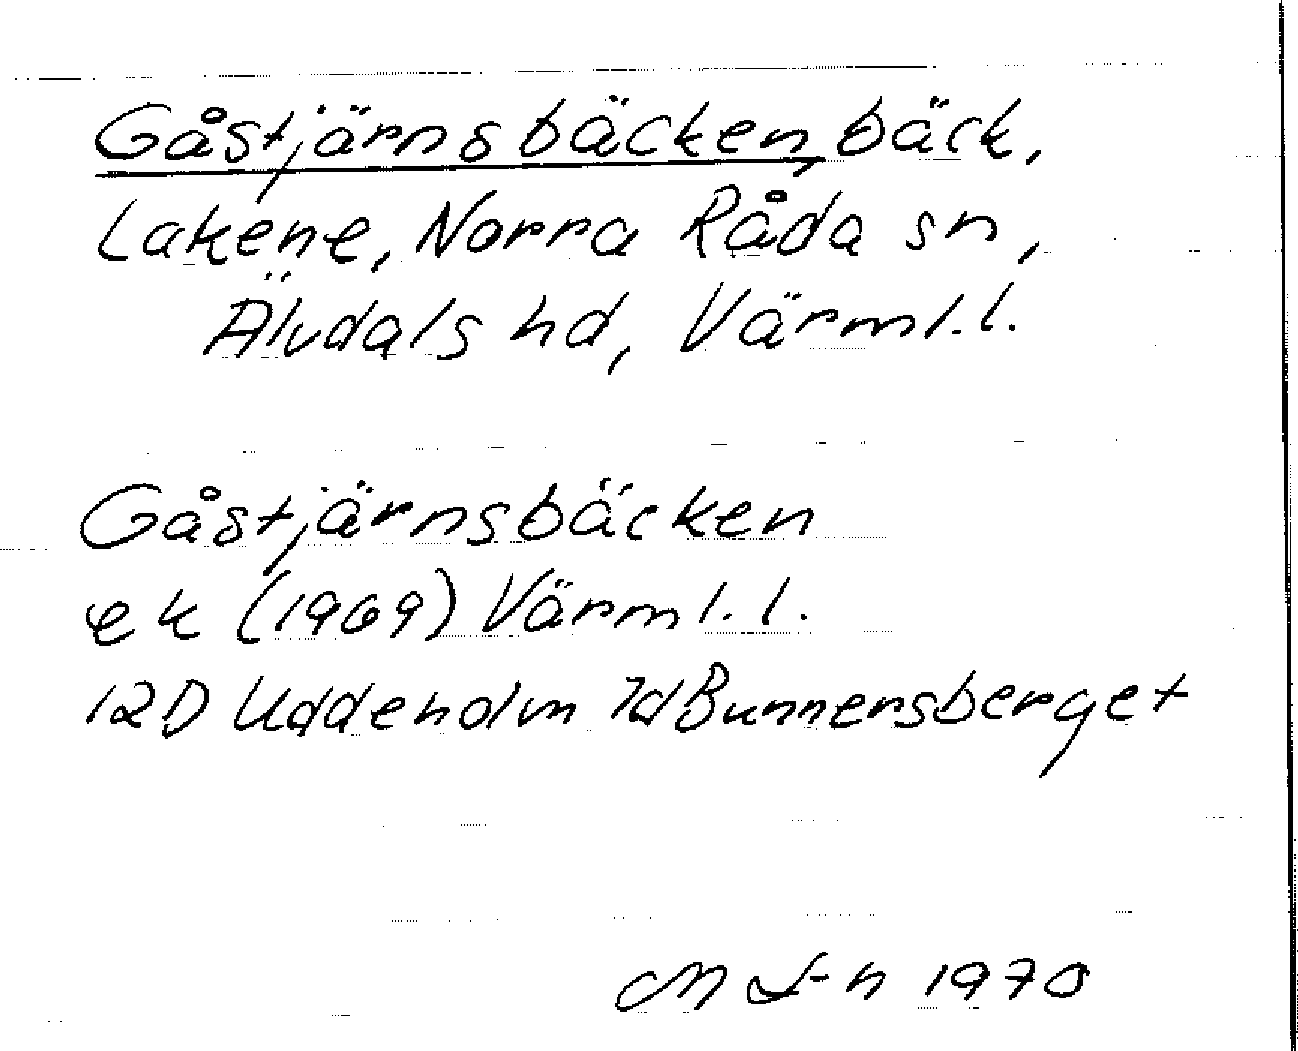 Gåstjärnsbäcken, bäck,
Lakene, Norra Råda sn,
Älvdals hd, Värml.l.
Gåstjärnsbäcken
ek (1969) Värml.l.
12D Uddeholm 7d Bunnersberget
1970